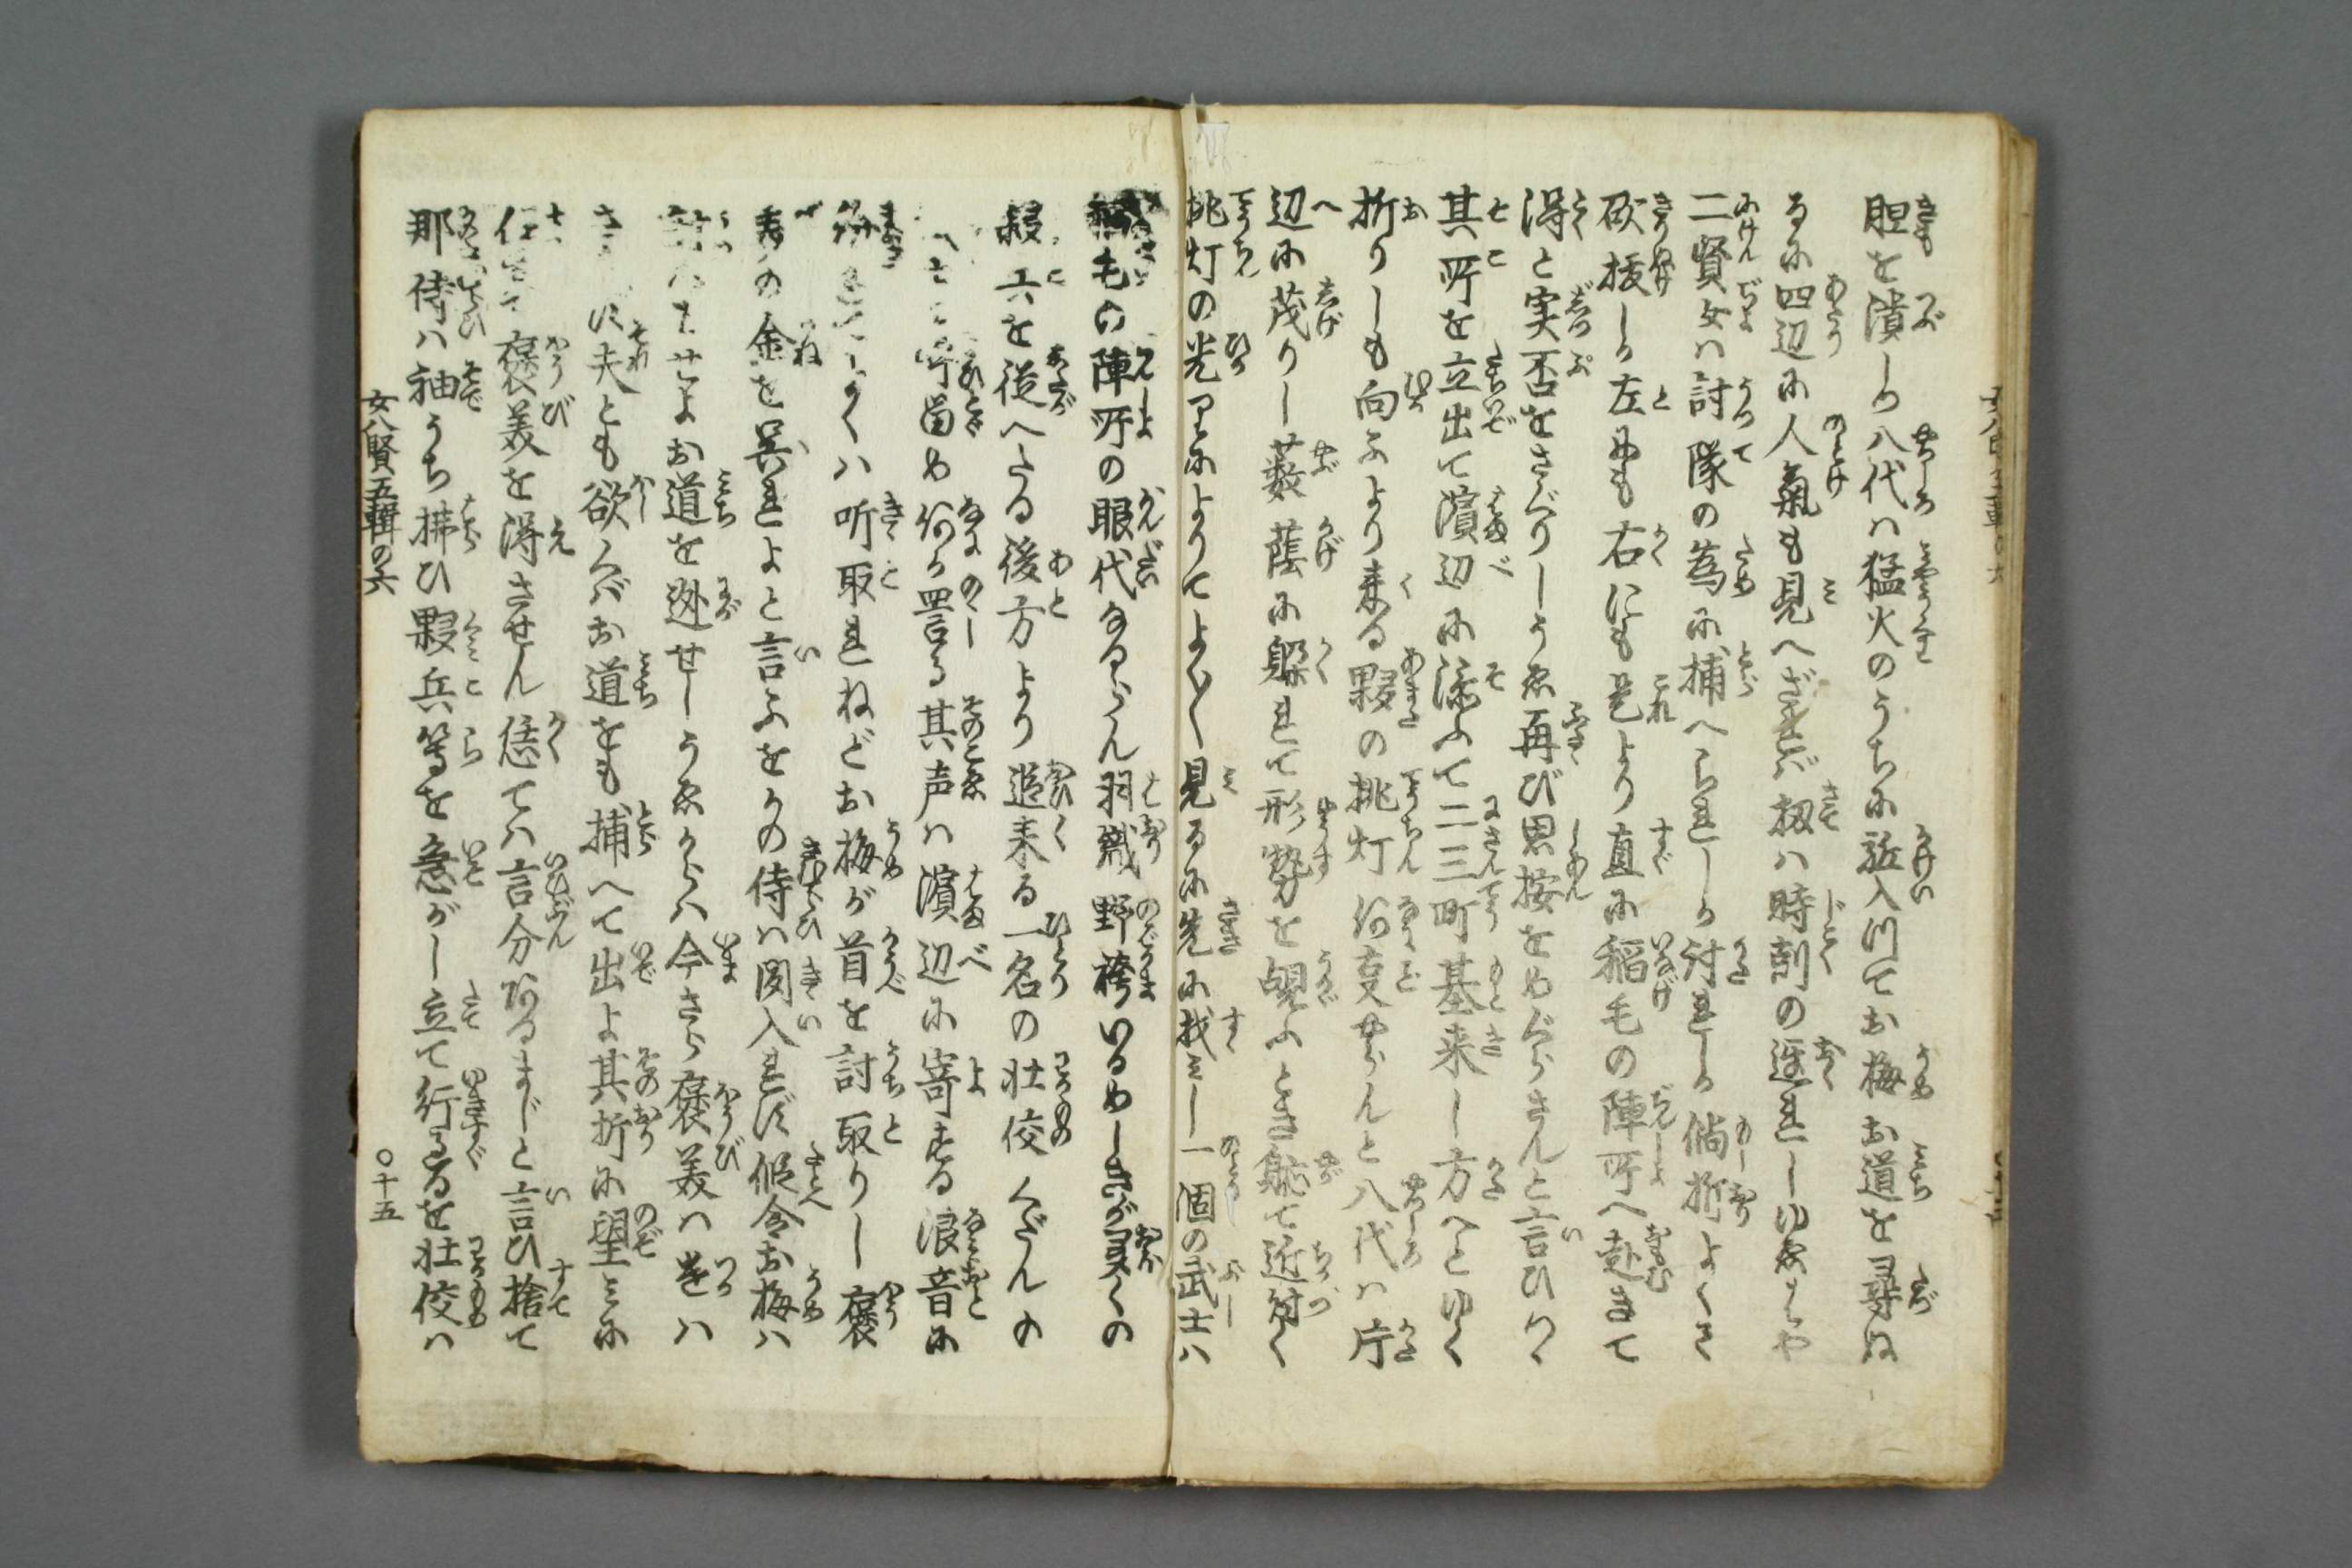 胆を潰しつ八代は猛火のうちに証入つてお梅お道を尋ぬ
るに四辺に人氣も見へざれバ扨ハ時刻の遅れしゆゑはや
二賢女ハ討隊の為に捕へられしか討れしか倘折よくさ
砍抜しか左にも右にも是より直に稲毛の陣所へ赴きて
得と実否をさぐりしうゑ再び思按をめぐらさんと言ひつゝ
其所を立出て濱辺に添ふて二三町基来し方へとゆく
折りしも向ふより来る夥の挑灯何支やらんと八代ハ片
辺に茂りし薮蔭に躱れて形勢を覘ふとき馳て近付く
挑灯の光りによりてよく〳〵見るに先に找みし一個の武士ハ
稲毛の陣所の眼代なるらん羽織野袴いかめしきが夛くの
夥兵を従へたる後方より追来る一名の壮佼くだんの
呼留め何か罵る其声ハ濱辺に寄する浪音に
聴取れねどお梅が首を討取りし褒
美の金を呉れよと言ふをかの侍ハ聞入れず假令お梅ハ
討つにもせよお道を迯せしうゑからハ今さら褒美ハ遣ハ
さ ず夫とも欲くバお道をも捕へて出よ其折に望みに
任せて褒美を得させん恁てハ言分あるまじと言ひ捨て
那侍ハ袖うち拂ひ夥兵等を急がし立て行過るを壮佼ハ
女八賢五輯の六
〇十五